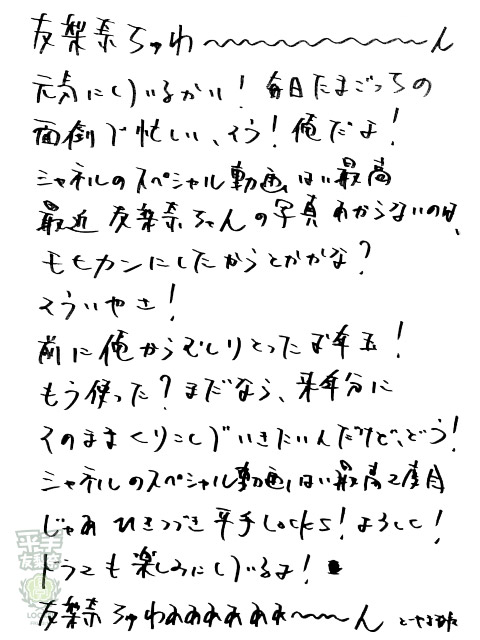 友梨奈ちゅわ〜〜〜〜〜〜〜〜ん
元気にしているかい！毎日たまごっちの
面倒で忙しい、そう！俺だよ！
シャネルのスペシャル動画、はい最高
最近友梨奈ちゃんの写真あがらないのは、
モヒカンにしたからとかかな？
そういやさ！
前に俺からむしりとったお年玉！
もう使った？まだなら、来年分に
そのままくりこしでいきたいんだけど、どう！
シャネルのスペシャル動画、はい最高2度目
じゃあひきつづき平手LOCKS！よろしく！
ドラマも楽しみにしているよ！
友梨奈ちゅわああああああ〜〜ん
平手
友梨奈